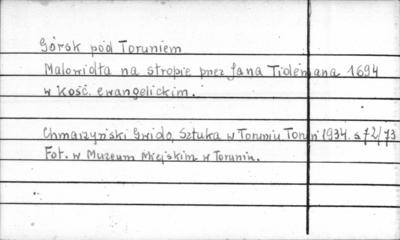 Górsk pod Toruniem
Malowidła na stropie przez Jana Tidemana 1694
w kość. ewangelickim.
Chmarzyński Gwido, Sztuka w Toruniu Toruń 1934. s 72/73
Fot. w Muzeum Miejskim w Toruniu.